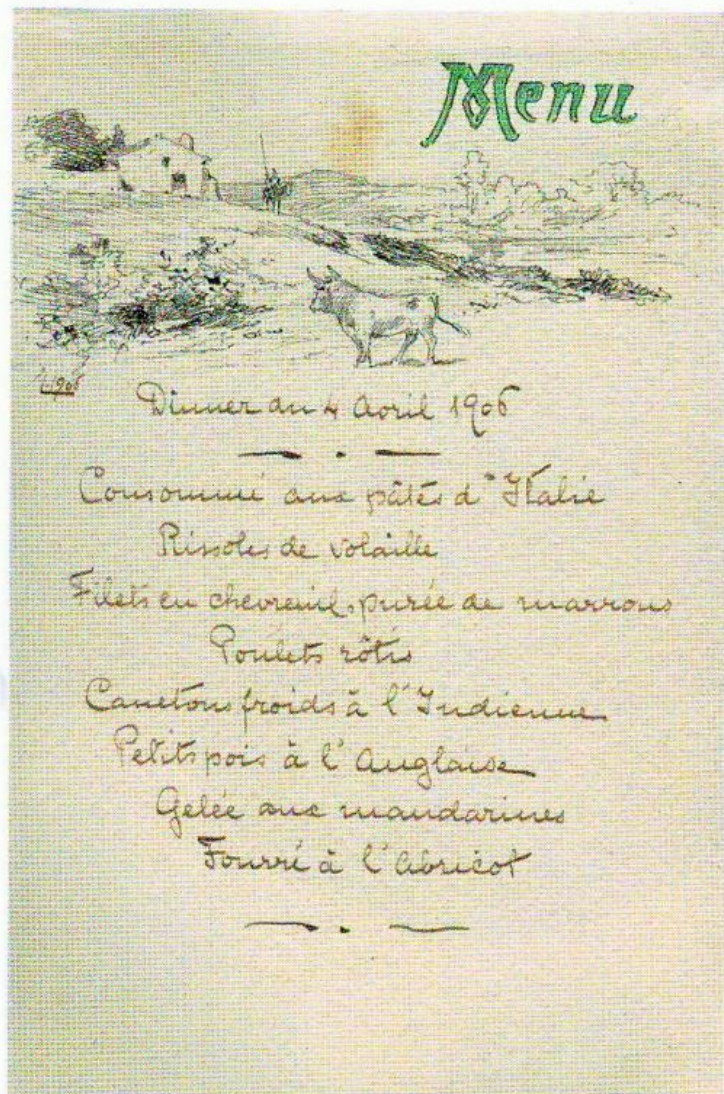 Menu
1906
Dinner du 4 Avril 1906
Consommé aux pâtés d'Italie
Rissoles de volaille
Filets en chevreuil, purée de marrons
Poulets rôtis
Canetons froids à l'Indienne
Petits pois à l'Anglaise
Gelée aux mandarines
Fourré à l'Abricot